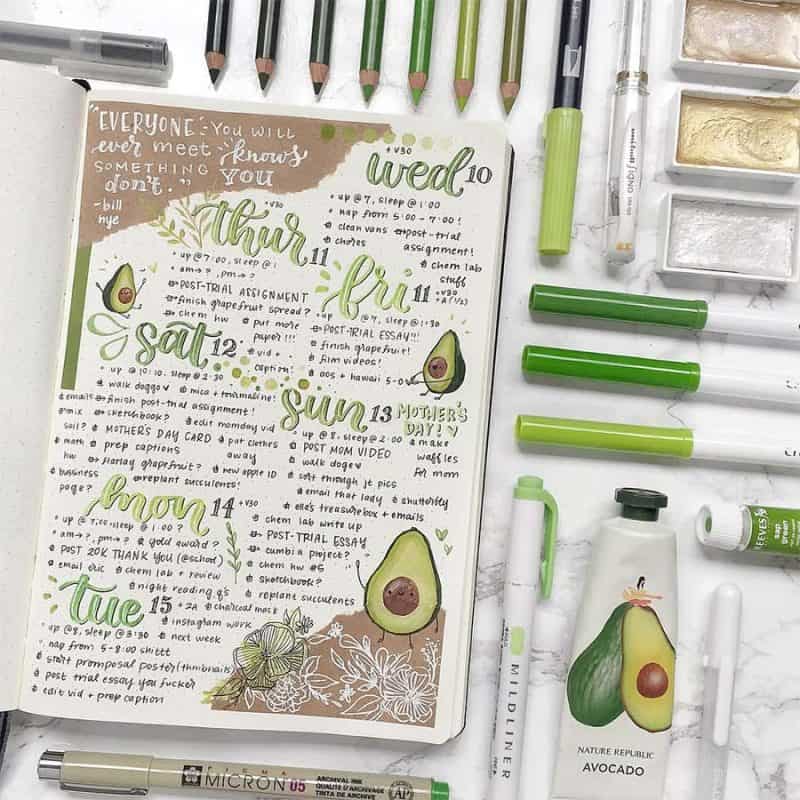 "EVERYONE YOU WILL
ever meet knows
SOMETHING YOU
don't."
-bill
nye
wed 10
+V30
up @ 7, sleep @ 1:00
nap from 5:00 - 7:00!
clean vans
post-trial
assignment!
chores
chem lab
stuff
thur 11
+V30
up @ 7:00, sleep @ 1
am→?, pm→?
POST-TRIAL ASSIGNMENT
finish grapefruit spread?
chem hw
put more
paper!!!
vid +
caption!
fri 11
+V30
+A (1/2)
up @ 7, sleep @ 1:30
POST-TRIAL ESSAY!!!
finish grapefruit!
film videos!
oos + hawaii 5-0
sat 12
up @ 10:10, sleep @ 2:30
walk doggo
mica + tourmaline!
emails
finish post-trial assignment!
mix
soil?
sketchbook?
edit momday vid
math
hw
MOTHER'S DAY CARD
put clothes
away
prep captions
bussiness
page?
grapefruit?
new apple ID
replant succulents!
sun 13
MOTHER'S
DAY!
up @ 8, sleep @ 2:00
make
waffles
for mom
POST MOM VIDEO
walk doge
sort through jt pics
email that lady
shutterfly
elle's treasurebox + emails
mon 14
+V30
up @ 7:00, sleep @ 1:00?
am→?, pm→?
gold award?
POST 20K THANK YOU (@school)
email eric
chem lab + review
night reading q's
chem lab write up
POST-TRIAL ESSAY
cumbia project?
chem hw #5
sketchbook?
replant succulents
tue 15
+2A
charcoal mask
up @ 8, sleep @ 3:30
instagram work
next week
nap from 5-8:00 shittt
start promposal poster (thumbnails)
post trial essay you fucker
edit vid + prep caption
SIGNO
REEVES
sap
green
MILDLINER
NATURE REPUBLIC
AVOCADO
PIGMA
MICRON 05
ARCHIVAL INK
QUALITÉ D'ARCHIVAGE
TINTA DE ARCHIVO
AP